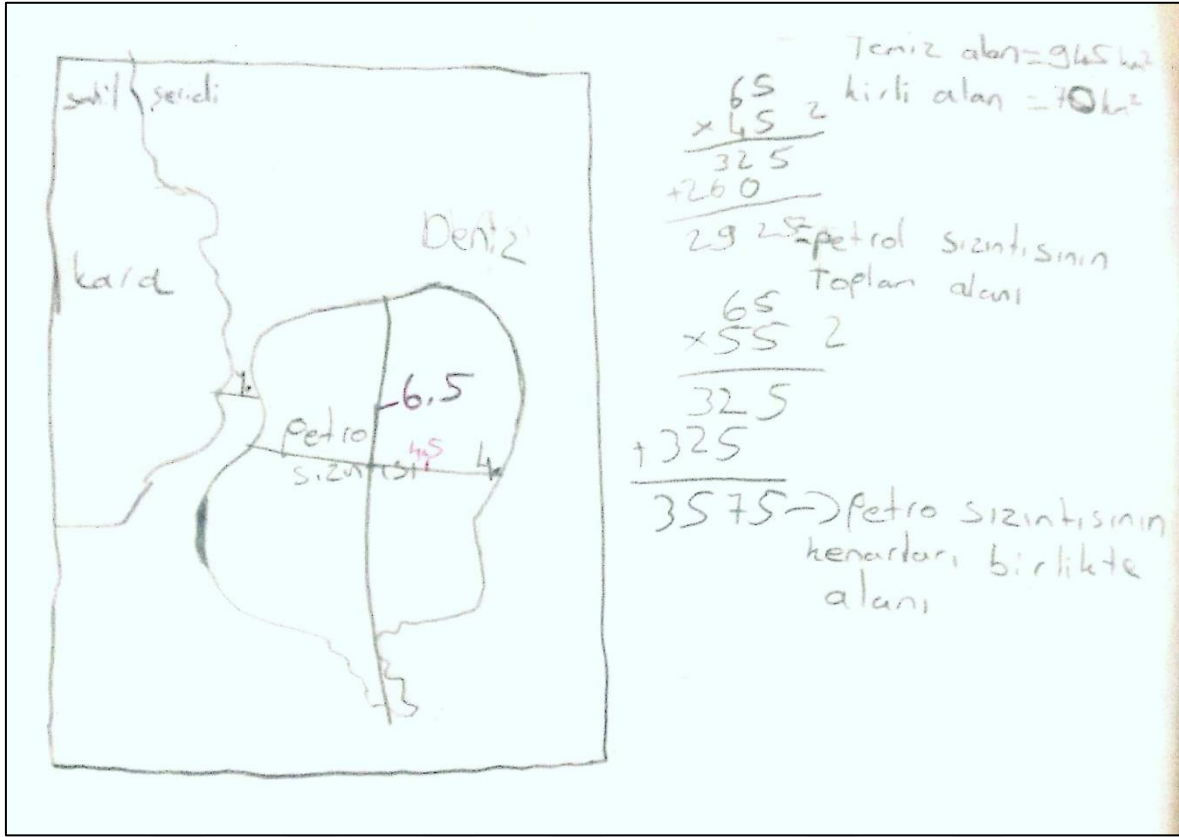 sahil şeridi
kara
Deniz
1
6.5
Petro
sızıntısı
4.5
4
3
Temiz alan = 945 km²
kirli alan = 70 km²
65
x 45 2
325
+260
2925 = petrol sızıntısının
toplam alanı
65
x 55 2
325
+325
3575 -> Petro sızıntısının
kenarları birlikte
alanı